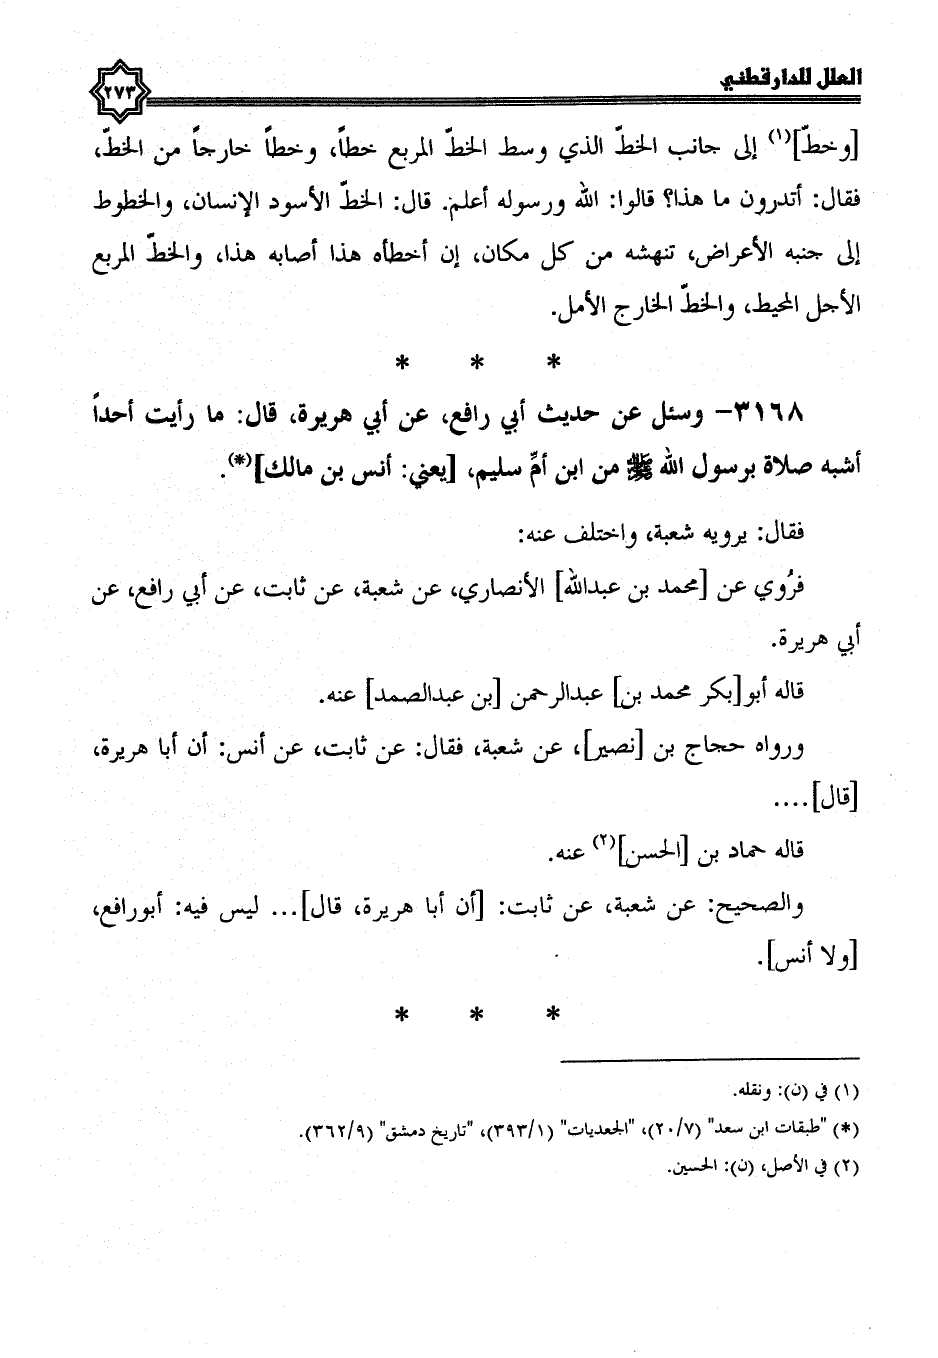 العلل للدارقطني
٢٧٣
[وخطّ](١) إلى جانب الخطّ الذي وسط الخطّ المربع خطاً، وخطاً خارجاً من الخطّ،
فقال: أتدرون ما هذا؟ قالوا: الله ورسوله أعلم. قال: الخطّ الأسود الإنسان، والخطوط
إلى جنبه الأعراض، تنهشه من كل مكان، إن أخطأه هذا أصابه هذا، والخطّ المربع
الأجل المحيط، والخطّ الخارج الأمل.
* * *
٣١٦٨- وسئل عن حديث أبي رافع، عن أبي هريرة، قال: ما رأيت أحداً
أشبه صلاة برسول الله ﷺ من ابن أمِّ سليم، [يعني: أنس بن مالك](*).
فقال: يرويه شعبة، واختلف عنه:
فرُوي عن [محمد بن عبدالله] الأنصاري، عن شعبة، عن ثابت، عن أبي رافع، عن
أبي هريرة.
قاله أبو[بكر محمد بن] عبدالرحمن [بن عبدالصمد] عنه.
ورواه حجاج بن [نصير]، عن شعبة، فقال: عن ثابت، عن أنس: أن أبا هريرة،
[قال]....
قاله حماد بن [الحسن](٢) عنه.
والصحيح: عن شعبة، عن ثابت: [أن أبا هريرة، قال]... ليس فيه: أبورافع،
[ولا أنس].
* * *
(١) في (ن): ونقله.
(*) "طبقات ابن سعد" (٢٠/٧)، "الجعديات" (٣٩٣/١)، "تاريخ دمشق" (٣٦٢/٩).
(٢) في الأصل، (ن): الحسين.